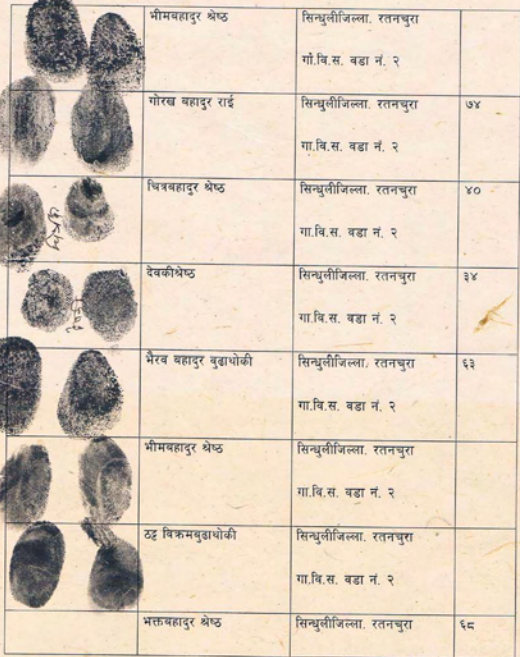 भीमबहादुर श्रेष्ठ सिन्धुलीजिल्ला. रतनचुरा
गाे.वि.स. वडा नं. २
गोरख बहादुर राई सिन्धुलीजिल्ला. रतनचुरा ७४
गा.वि.स. वडा नं. २
चित्रबहादुर श्रेष्ठ सिन्धुलीजिल्ला. रतनचुरा ४०
गा.वि.स. वडा नं. २
देवकीश्रेष्ठ सिन्धुलीजिल्ला. रतनचुरा ३४
गा.वि.स. वडा नं. २
भैरव बहादुर बुढाथोकी सिन्धुलीजिल्ला. रतनचुरा ६३
गा.वि.स. वडा नं. २
भीमबहादुर श्रेष्ठ सिन्धुलीजिल्ला. रतनचुरा
गा.वि.स. वडा नं. २
ठट्ट विक्रमबुढाथोकी सिन्धुलीजिल्ला. रतनचुरा
गा.वि.स. वडा नं. २
भक्तबहादुर श्रेष्ठ सिन्धुलीजिल्ला. रतनचुरा ६८